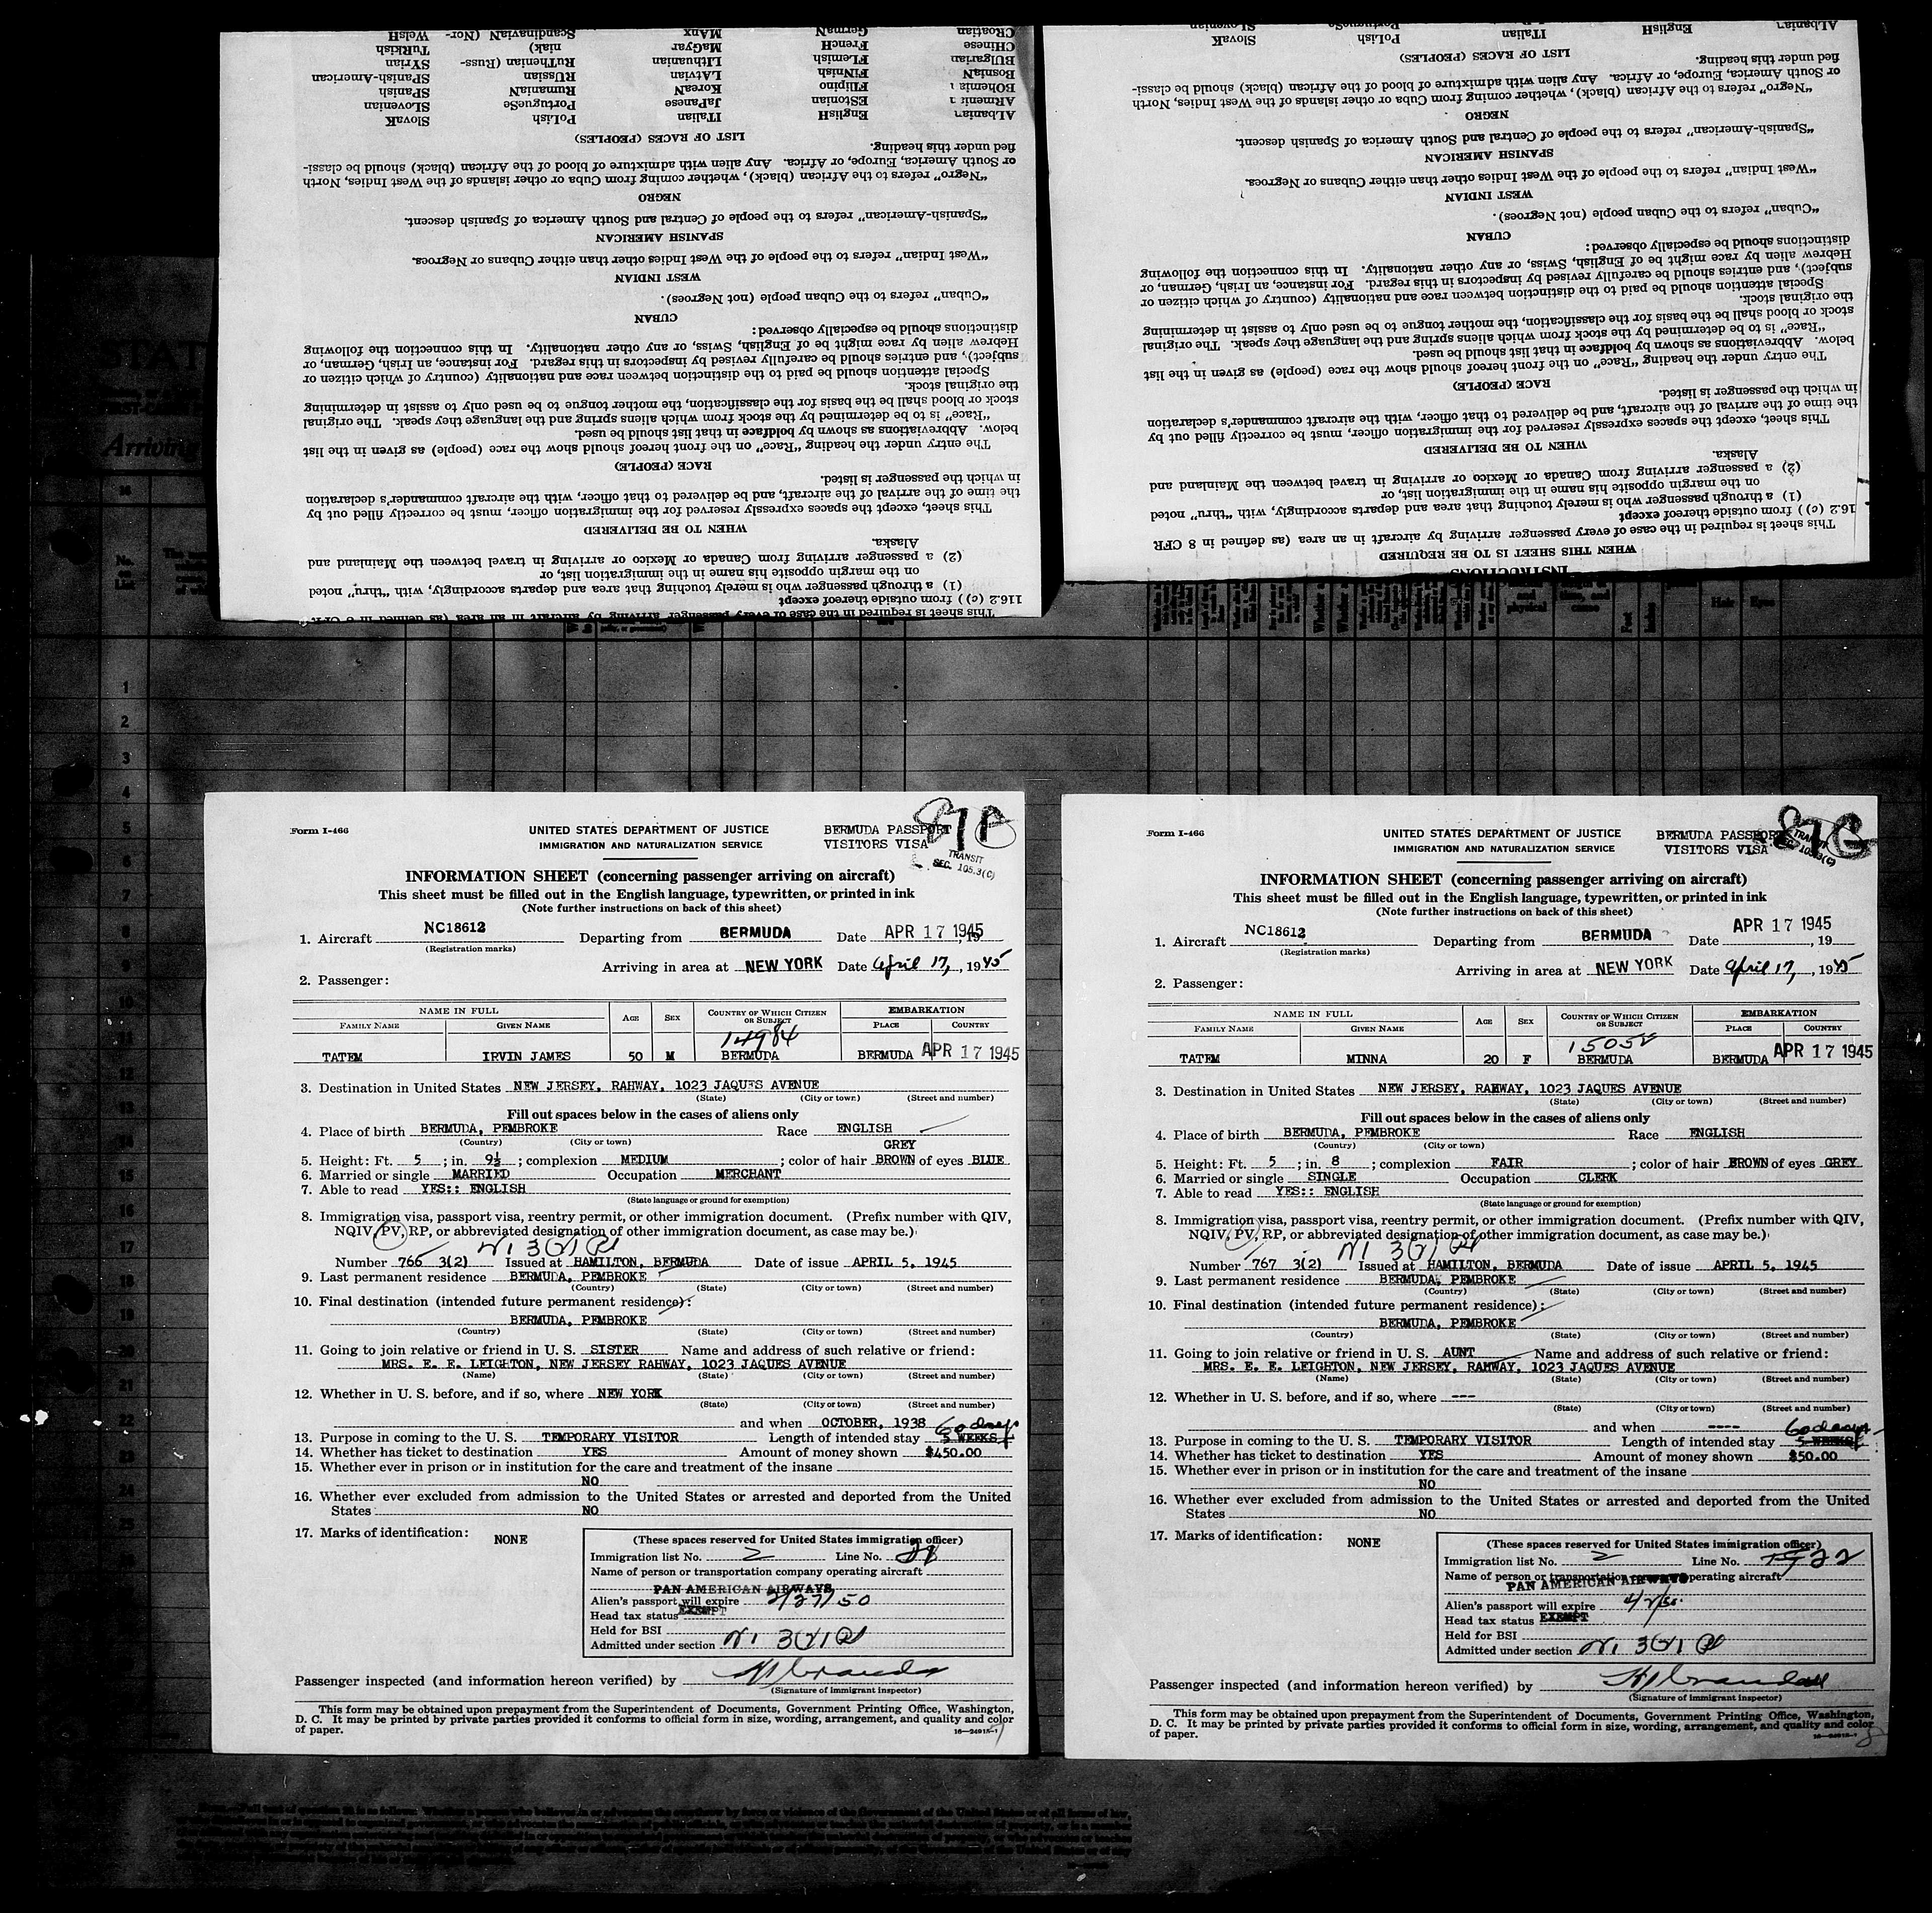 SlovaK
SLOvenian
SPanish
SPAnish-American
SYrian
TuRkish
WElsH
PoLish
PortugueSe
RumaniaN
RUSsian
RuThenian (Russ-
niak)
ScandinaviaN (Nor-
ITalian
JaPanese
KoreaN
LAtvian
LIthuanian
MaGyar
MAnx
EnglisH
EStonian
FIlipino
FINnish
FLemish
FrencH
GermaN
BOsniaN
BUlgarian
CHInese
CRoatian
LIST OF RACES (PEOPLES)
fied under this heading.
or South America, Europe, or Africa. Any alien with admixture of blood of the African (black) should be classi-
"Negro" refers to the African (black), whether coming from Cuba or other islands of the West Indies, North
NEGRO
"Spanish-American" refers to the people of Central and South America of Spanish descent.
SPANISH AMERICAN
"West Indian" refers to the people of the West Indies other than either Cubans or Negroes.
WEST INDIAN
"Cuban" refers to the Cuban people (not Negroes).
CUBAN
distinctions should be especially observed:
Hebrew alien by race might be of English, Swiss, or any other nationality. In this connection the following
subject), and entries should be carefully revised by inspectors in this regard. For instance, an Irish, German, or
Special attention should be paid to the distinction between race and nationality (country of which citizen or
the original stock.
stock or blood shall be the basis for the classification, the mother tongue to be used only to assist in determining
"Race" is to be determined by the stock from which aliens spring and the language they speak. The original
below. Abbreviations as shown by boldface in that list should be used.
The entry under the heading "Race" on the front hereof should show the race (people) as given in the list
RACE (PEOPLE)
in which the passenger is listed.
the time of the arrival of the aircraft, and be delivered to that officer, with the aircraft commander's declaration
This sheet, except the spaces expressly reserved for the immigration officer, must be correctly filled out by
WHEN TO BE DELIVERED
Alaska.
(2) a passenger arriving from Canada or Mexico or arriving in travel between the Mainland and
on the margin opposite his name in the immigration list, or
(1) a through passenger who is merely touching that area and departs accordingly, with "thru" noted
116.2 (c)) from outside thereof except
This sheet is required in the case of every passenger arriving by aircraft in an area (as defined in 8 CFR
SlovaK
PoLish
ITalian
EnglisH
LIST OF RACES (PEOPLES)
fied under this heading.
or South America, Europe, or Africa. Any alien with admixture of blood of the African (black) should be classi-
"Negro" refers to the African (black), whether coming from Cuba or other islands of the West Indies, North
NEGRO
"Spanish-American" refers to the people of Central and South America of Spanish descent.
SPANISH AMERICAN
"West Indian" refers to the people of the West Indies other than either Cubans or Negroes.
WEST INDIAN
"Cuban" refers to the Cuban people (not Negroes).
CUBAN
distinctions should be especially observed:
Hebrew alien by race might be of English, Swiss, or any other nationality. In this connection the following
subject), and entries should be carefully revised by inspectors in this regard. For instance, an Irish, German, or
Special attention should be paid to the distinction between race and nationality (country of which citizen or
the original stock.
stock or blood shall be the basis for the classification, the mother tongue to be used only to assist in determining
"Race" is to be determined by the stock from which aliens spring and the language they speak. The original
below. Abbreviations as shown by boldface in that list should be used.
The entry under the heading "Race" on the front hereof should show the race (people) as given in the list
RACE (PEOPLE)
in which the passenger is listed.
the time of the arrival of the aircraft, and be delivered to that officer, with the aircraft commander's declaration
This sheet, except the spaces expressly reserved for the immigration officer, must be correctly filled out by
WHEN TO BE DELIVERED
Alaska.
(2) a passenger arriving from Canada or Mexico or arriving in travel between the Mainland and
on the margin opposite his name in the immigration list, or
(1) a through passenger who is merely touching that area and departs accordingly, with "thru" noted
16.2 (c)) from outside thereof except
This sheet is required in the case of every passenger arriving by aircraft in an area (as defined in 8 CFR
WHEN THIS SHEET IS TO BE REQUIRED
INSTRUCTIONS
Arriving
1
2
3
4
5
6
7
8
9
10
11
12
13
14
15
16
17
18
19
20
21
22
23
24
25
Form I-466
UNITED STATES DEPARTMENT OF JUSTICE
IMMIGRATION AND NATURALIZATION SERVICE
BERMUDA PASSPORT
VISITORS VISA
TRANSIT
SEC. 105.3(C)
INFORMATION SHEET (concerning passenger arriving on aircraft)
This sheet must be filled out in the English language, typewritten, or printed in ink
(Note further instructions on back of this sheet)
1. Aircraft NC18612 Departing from BERMUDA Date APR 17 1945, 19
(Registration marks)
Arriving in area at NEW YORK Date April 17, 1945
2. Passenger:
NAME IN FULL
FAMILY NAME GIVEN NAME AGE SEX COUNTRY OF WHICH CITIZEN OR SUBJECT EMBARKATION PLACE COUNTRY
14984
TATEM IRVIN JAMES 50 M BERMUDA BERMUDA APR 17 1945
3. Destination in United States NEW JERSEY, RAHWAY, 1023 JAQUES AVENUE
(State) (City or town) (Street and number)
Fill out spaces below in the cases of aliens only
4. Place of birth BERMUDA, PEMBROKE Race ENGLISH
(Country) (City or town)
GREY
5. Height: Ft. 5 ; in. 9½ ; complexion MEDIUM ; color of hair BROWN of eyes BLUE
6. Married or single MARRIED Occupation MERCHANT
7. Able to read YES:: ENGLISH
(State language or ground for exemption)
8. Immigration visa, passport visa, reentry permit, or other immigration document. (Prefix number with QIV,
NQIV, PV, RP, or abbreviated designation of other immigration document, as case may be.)
Number 766 3(2) Issued at HAMILTON, BERMUDA Date of issue APRIL 5, 1945
9. Last permanent residence BERMUDA, PEMBROKE
(Country) (State) (City or town) (Street and number)
10. Final destination (intended future permanent residence):
BERMUDA, PEMBROKE
(Country) (State) (City or town) (Street and number)
11. Going to join relative or friend in U. S. SISTER Name and address of such relative or friend:
MRS. E. E. LEIGHTON, NEW JERSEY RAHWAY, 1023 JAQUES AVENUE
(Name) (State) (City or town) (Street and number)
12. Whether in U. S. before, and if so, where NEW YORK
(State) (City or town) (Street and number)
and when OCTOBER, 1938
60 days
13. Purpose in coming to the U. S. TEMPORARY VISITOR Length of intended stay 5 WEEKS
14. Whether has ticket to destination YES Amount of money shown $450.00
15. Whether ever in prison or in institution for the care and treatment of the insane
NO
16. Whether ever excluded from admission to the United States or arrested and deported from the United
States NO
17. Marks of identification: NONE
(These spaces reserved for United States immigration officer)
Immigration list No. 2 Line No. 21
Name of person or transportation company operating aircraft
PAN AMERICAN AIRWAYS
Alien's passport will expire 2/27/50
Head tax status EXEMPT
Held for BSI
Admitted under section
Passenger inspected (and information hereon verified) by
(Signature of immigrant inspector)
This form may be obtained upon prepayment from the Superintendent of Documents, Government Printing Office, Washington,
D. C. It may be printed by private parties provided it conforms to official form in size, wording, arrangement, and quality and color
of paper.
Form I-466
UNITED STATES DEPARTMENT OF JUSTICE
IMMIGRATION AND NATURALIZATION SERVICE
BERMUDA PASSPORT
VISITORS VISA
TRANSIT
SEC. 105.3(C)
INFORMATION SHEET (concerning passenger arriving on aircraft)
This sheet must be filled out in the English language, typewritten, or printed in ink
(Note further instructions on back of this sheet)
1. Aircraft NC18612 Departing from BERMUDA Date APR 17 1945, 19
(Registration marks)
Arriving in area at NEW YORK Date April 17, 1945
2. Passenger:
NAME IN FULL
FAMILY NAME GIVEN NAME AGE SEX COUNTRY OF WHICH CITIZEN OR SUBJECT EMBARKATION PLACE COUNTRY
TATEM MINNA 20 F BERMUDA BERMUDA APR 17 1945
3. Destination in United States NEW JERSEY, RAHWAY, 1023 JAQUES AVENUE
(State) (City or town) (Street and number)
Fill out spaces below in the cases of aliens only
4. Place of birth BERMUDA, PEMBROKE Race ENGLISH
(Country) (City or town)
5. Height: Ft. 5 ; in. 8 ; complexion FAIR ; color of hair BROWN of eyes GREY
6. Married or single SINGLE Occupation CLERK
7. Able to read YES:: ENGLISH
(State language or ground for exemption)
8. Immigration visa, passport visa, reentry permit, or other immigration document. (Prefix number with QIV,
NQIV, PV, RP, or abbreviated designation of other immigration document, as case may be.)
Number 767 3(2) Issued at HAMILTON, BERMUDA Date of issue APRIL 5, 1945
9. Last permanent residence BERMUDA, PEMBROKE
(Country) (State) (City or town) (Street and number)
10. Final destination (intended future permanent residence):
BERMUDA, PEMBROKE
(Country) (State) (City or town) (Street and number)
11. Going to join relative or friend in U. S. AUNT Name and address of such relative or friend:
MRS. E. E. LEIGHTON, NEW JERSEY, RAHWAY, 1023 JAQUES AVENUE
(Name) (State) (City or town) (Street and number)
12. Whether in U. S. before, and if so, where ---
(State) (City or town) (Street and number)
and when ----
60 days
13. Purpose in coming to the U. S. TEMPORARY VISITOR Length of intended stay 5 WEEKS
14. Whether has ticket to destination YES Amount of money shown $50.00
15. Whether ever in prison or in institution for the care and treatment of the insane
NO
16. Whether ever excluded from admission to the United States or arrested and deported from the United
States NO
17. Marks of identification: NONE
(These spaces reserved for United States immigration officer)
Immigration list No. 2 Line No. 22
Name of person or transportation company operating aircraft
PAN AMERICAN AIRWAYS
Alien's passport will expire 4/2/50
Head tax status EXEMPT
Held for BSI
Admitted under section
Passenger inspected (and information hereon verified) by
(Signature of immigrant inspector)
This form may be obtained upon prepayment from the Superintendent of Documents, Government Printing Office, Washington,
D. C. It may be printed by private parties provided it conforms to official form in size, wording, arrangement, and quality and color
of paper.